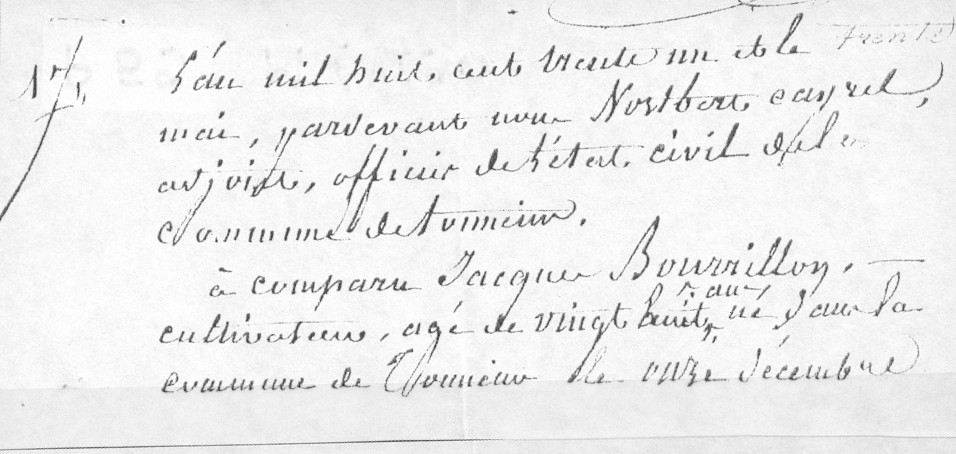 L'an mil huit cent trente un et le trente
mai, pardevant nous Nostbert cayrel,
adjoint, officier de l'état civil de la
commune de tonneins.
à comparu Jacques Bourrillon,
cultivateur, agé de vingt huit ans, né dans la
commune de Tonneins le onze décembre